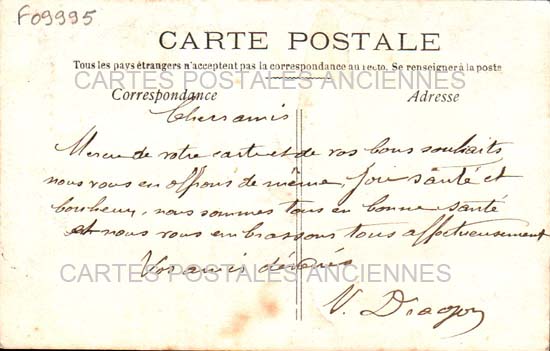 F09995
CARTE POSTALE
Tous les pays étrangers n'acceptent pas la correspondance au recto. Se renseigner à la poste
CARTES POSTALES ANCIENNES
Correspondance Adresse
Chers amis
Merci de votre carte et de vos bons souhaits
nous vous en offrons de même, Joie santé et
bonheur, nous sommes tous en bonne santé
et nous vous embrassons tous affectueusement
Vos amis dévoués
CARTES POSTALES ANCIENNES
V.